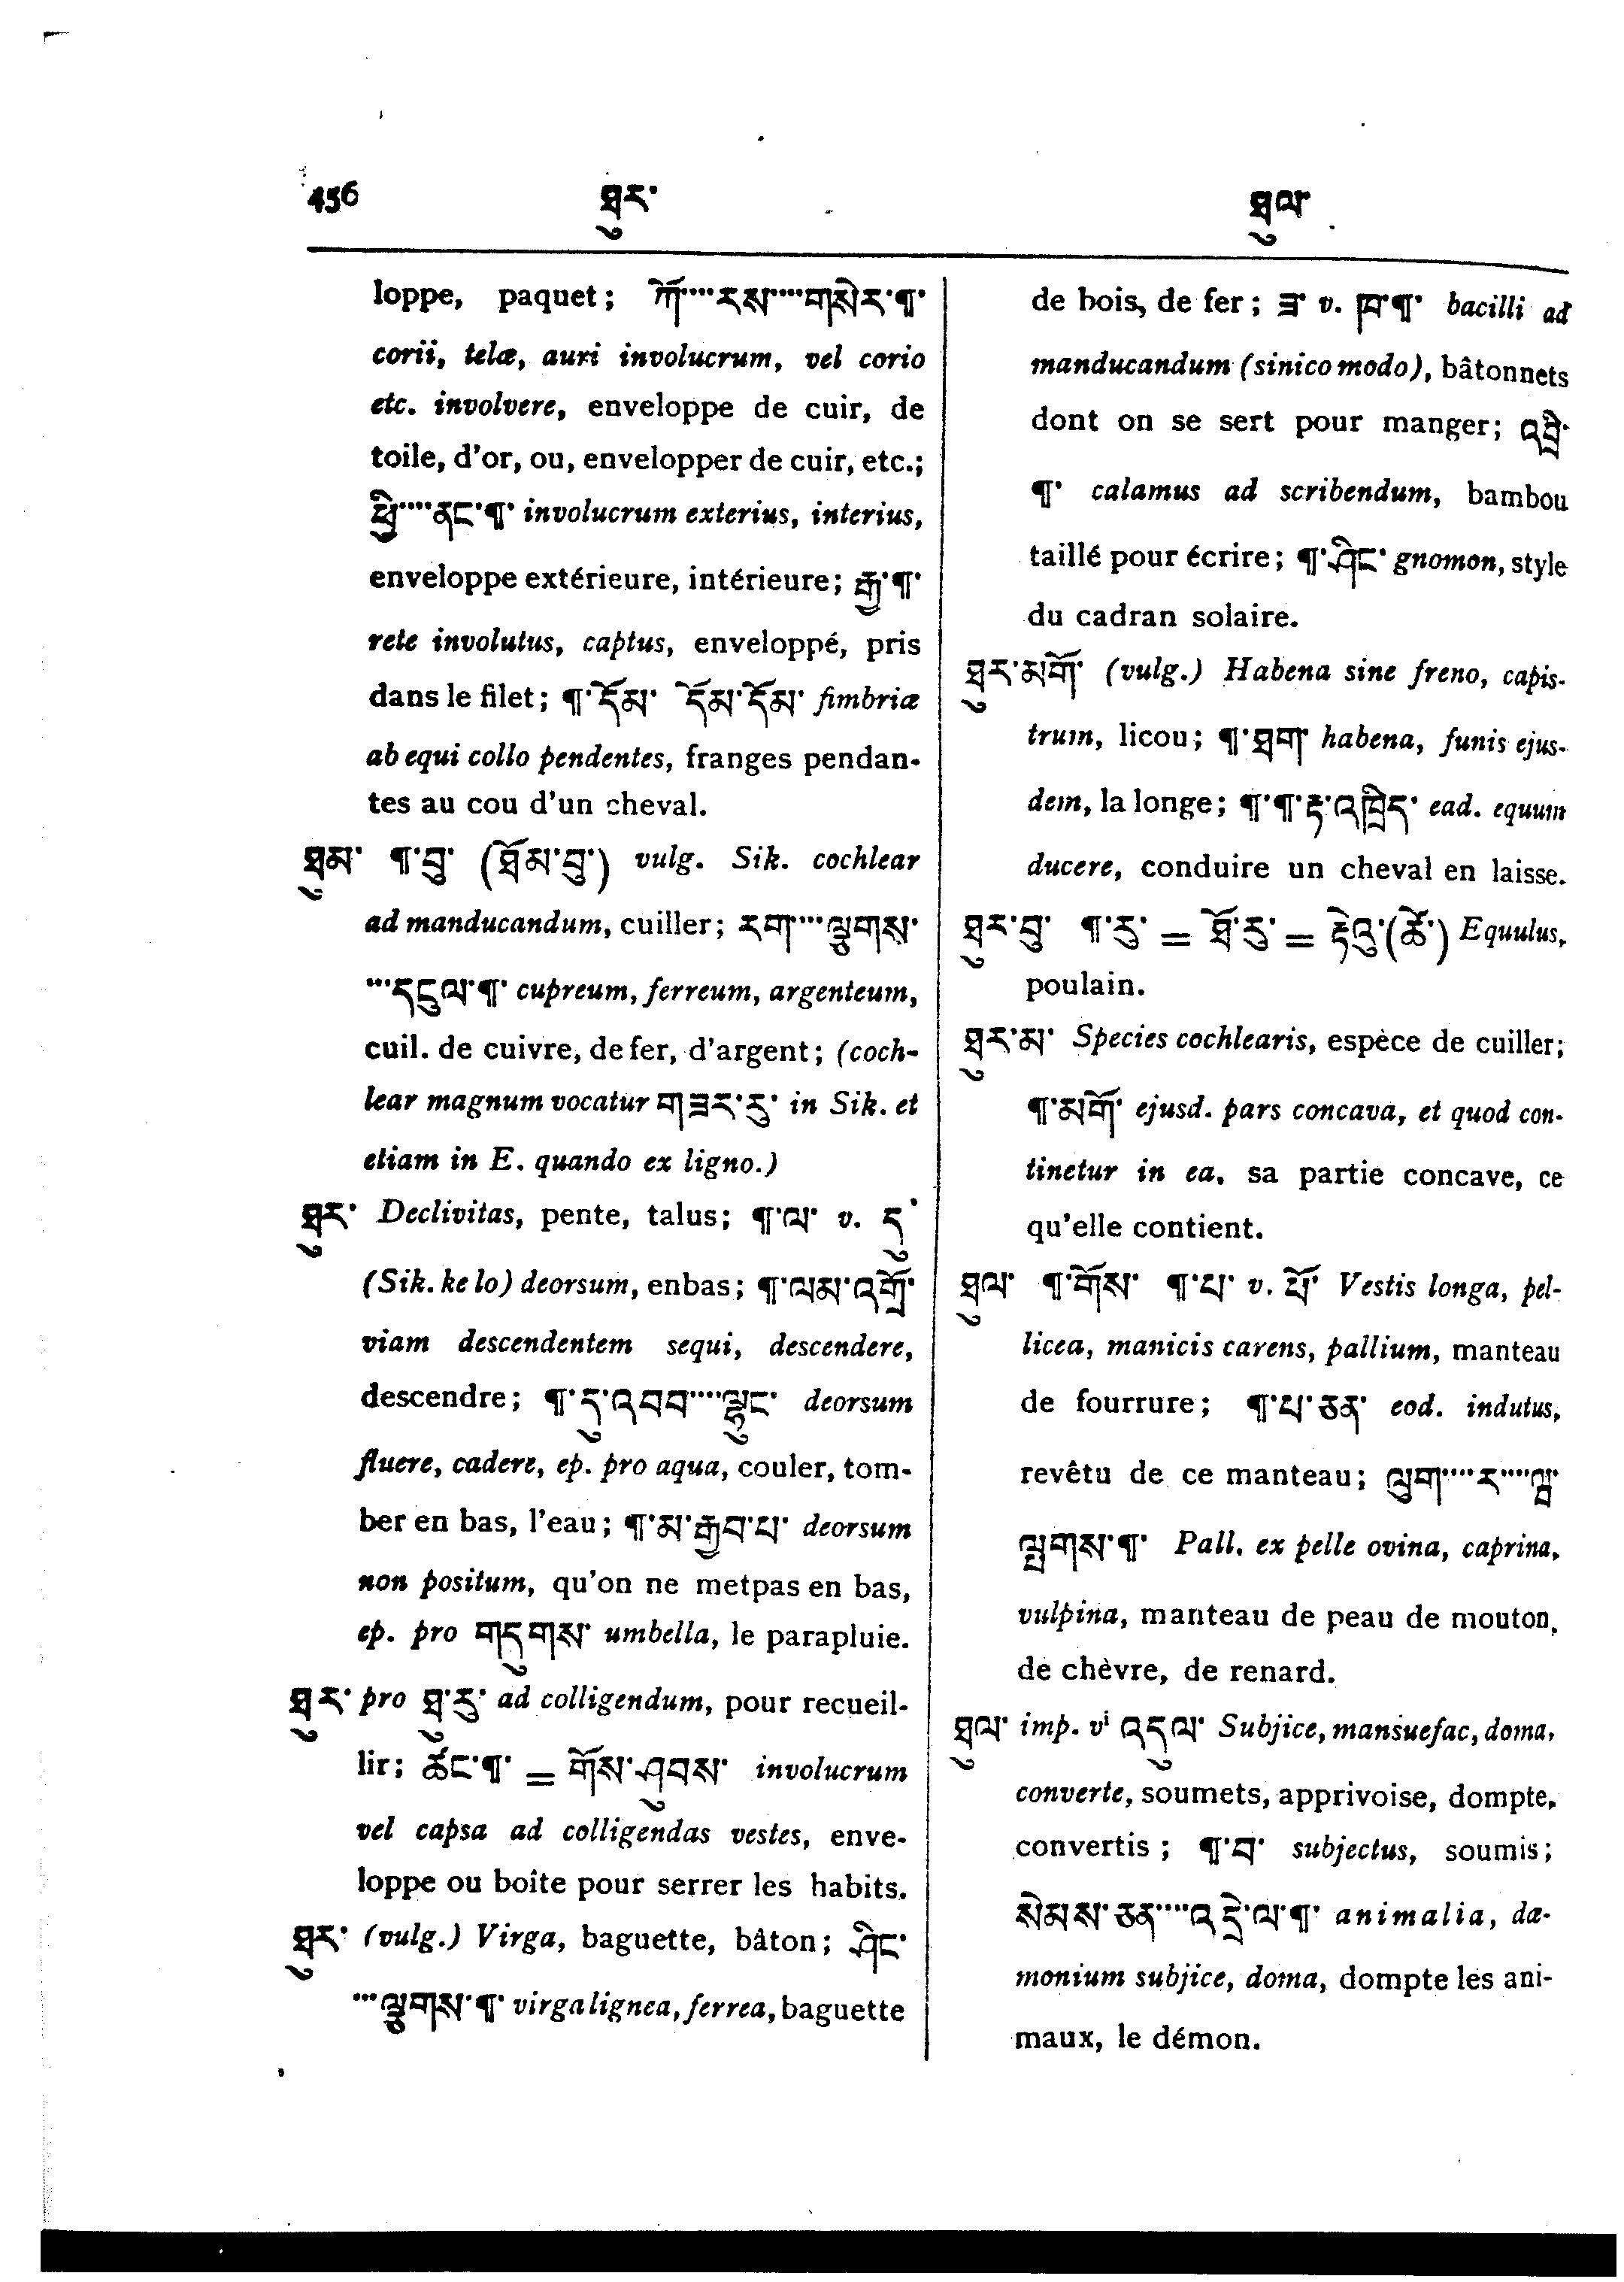 456 ཐུར་ ཐུལ་
loppe, paquet; ཀོ་་་་རས་་་་གསེར་¶་
corii, telæ, auri involucrum, vel corio
etc. involvere, enveloppe de cuir, de
toile, d'or, ou, envelopper de cuir, etc.;
ཕྱི་་་་ནང་¶་ involucrum exterius, interius,
enveloppe extérieure, intérieure; རྒྱ་¶་
rete involutus, captus, enveloppé, pris
dans le filet; ¶་དོམ་ དོམ་དོམ་ fimbriæ
ab equi collo pendentes, franges pendan-
tes au cou d'un cheval.
ཐུམ་ ¶་བུ་ (ཐོམ་བུ་) vulg. Sik. cochlear
ad manducandum, cuiller; རག་་་་ལྕགས་
་་་དངུལ་¶་ cupreum, ferreum, argenteum,
cuil. de cuivre, de fer, d'argent; (coch-
lear magnum vocatur གཟར་རུ་ in Sik. et
etiam in E. quando ex ligno.)
ཐུར་ Declivitas, pente, talus; ¶་ལ་ v. དུ་
(Sik. ke lo) deorsum, en bas; ¶་ལམ་འགྲོ་
viam descendentem sequi, descendere,
descendre; ¶་དུ་འབབ་་་་ལྷུང་ deorsum
fluere, cadere, ep. pro aqua, couler, tom-
ber en bas, l'eau; ¶་མ་རྒྱབ་པ་ deorsum
non positum, qu'on ne met pas en bas,
ep. pro གདུགས་ umbella, le parapluie.
ཐུར་ pro ཐུ་རུ་ ad colligendum, pour recueil-
lir; ཚོང་¶་ = གོས་ཤུབས་ involucrum
vel capsa ad colligendas vestes, enve-
loppe ou boîte pour serrer les habits.
ཐུར་ (vulg.) Virga, baguette, bâton; ཤིང་
་་་ལྕགས་¶་ virga lignea, ferrea, baguette
de bois, de fer; ཟ་ v. ཁ་¶་ bacilli ad
manducandum (sinico modo), bâtonnets
dont on se sert pour manger; འབྲི་
¶་ calamus ad scribendum, bambou
taillé pour écrire; ¶་ཤིང་ gnomon, style
du cadran solaire.
ཐུར་མགོ་ (vulg.) Habena sine freno, capis-
trum, licou; ¶་ཐག་ habena, funis ejus-
dem, la longe; ¶་¶་རྟ་འཁྲིད་ ead. equum
ducere, conduire un cheval en laisse.
ཐུར་བུ་ ¶་རུ་ = ཐོ་རུ་ = རྟེའུ་(ཚོ་) Equulus,
poulain.
ཐུར་མ་ Species cochlearis, espèce de cuiller;
¶་མགོ་ ejusd. pars concava, et quod con-
tinetur in ea, sa partie concave, ce
qu'elle contient.
ཐུལ་ ¶་གོས་ ¶་པ་ v. པོ་ Vestis longa, pel-
licea, manicis carens, pallium, manteau
de fourrure; ¶་པ་ཅན་ eod. indutus,
revêtu de ce manteau; ལུག་་་་ར་་་་ལྭ་
ལྤགས་¶་ Pall. ex pelle ovina, caprina,
vulpina, manteau de peau de mouton,
de chèvre, de renard.
ཐུལ་ imp. vⁱ འདུལ་ Subjice, mansuefac, doma,
converte, soumets, apprivoise, dompte,
convertis; ¶་བ་ subjectus, soumis;
སེམས་ཅན་་་་འདྲེ་ལ་¶་ animalia, dæ-
monium subjice, doma, dompte les ani-
maux, le démon.